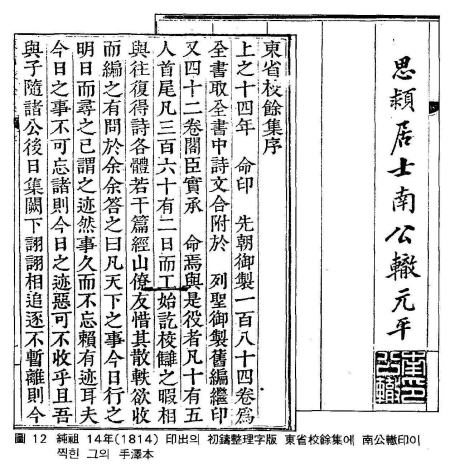 思潁居士南公轍元平
南公轍印
東省校餘集序
上之十四年 命印 先朝御製一百八十四卷爲
全書取全書中詩文合附於 列聖御製舊編繼印
又四十二卷閣臣實承 命焉與是役者凡十有五
人首尾凡三百六十有二日而工始訖校讎之暇相
與往復得詩各體若干篇經山僚友惜其散軼欲收
而編之有問於余余答之曰凡天下之事今日行之
明日而尋之已謂之迹然事久而不忘賴有迹耳夫
今日之事不可忘諸則今日之迹惡可不收乎且吾
與子隨諸公後日集闕下詡詡相追逐不暫離則今
圖 12 純祖 14年(1814) 印出의 初鑄整理字版 東省校餘集에 南公轍印이
찍힌 그의 手澤本